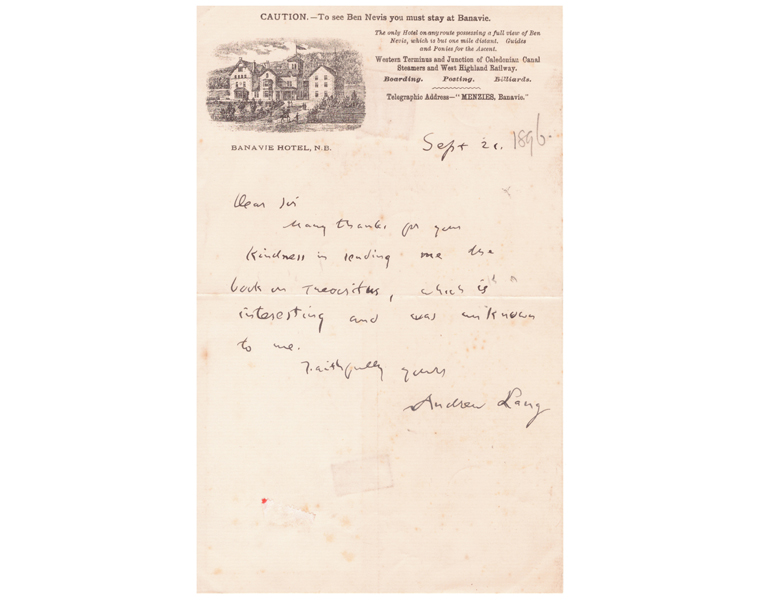 CAUTION.—To see Ben Nevis you must stay at Banavie.
The only Hotel on any route possessing a full view of Ben
Nevis, which is but one mile distant. Guides
and Ponies for the Ascent.
Western Terminus and Junction of Caledonian Canal
Steamers and West Highland Railway.
Boarding. Posting. Billiards.
Telegraphic Address—"MENZIES, Banavie."
BANAVIE HOTEL, N.B.
Sept 1896
Dear Sir
Many thanks for your
kindness in sending me the
book on Theocritus, which is
interesting and was unknown
to me.
Faithfully yours
Andrew Lang